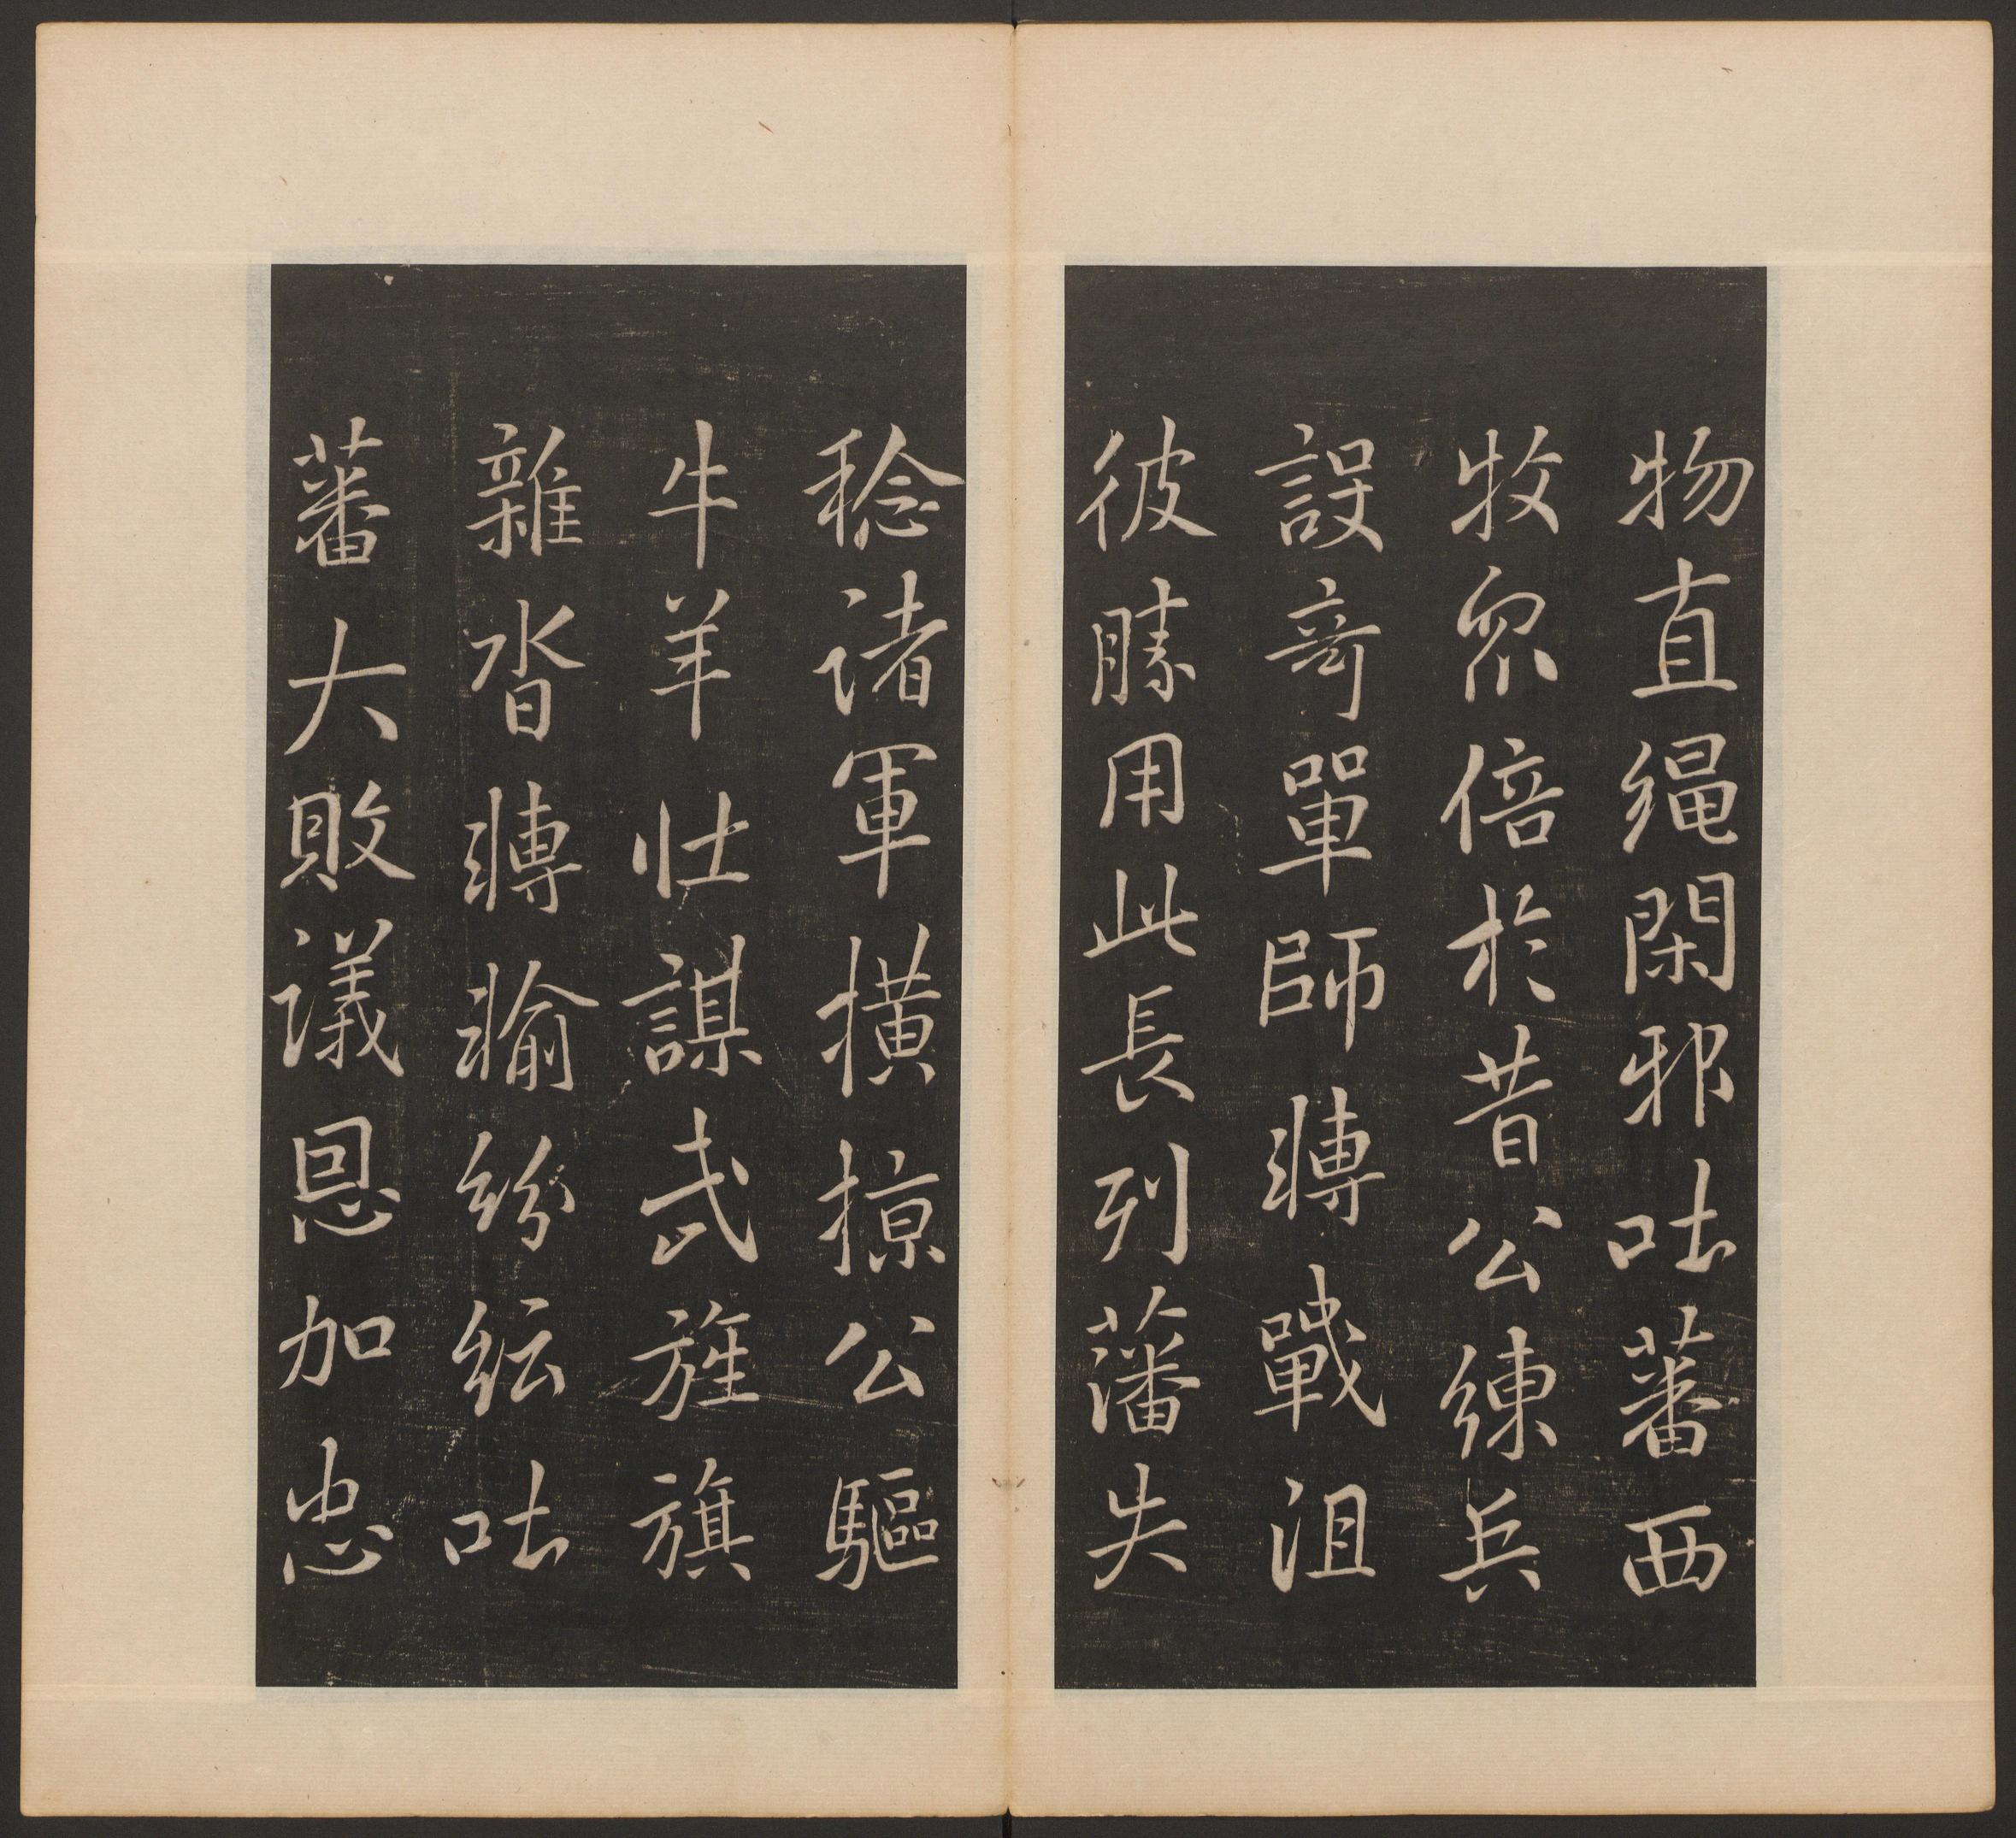 物直繩閑邪吐蕃西
牧眾倍於昔公練兵
誤奇單師轉戰沮
彼勝用此長列藩失
稔諸軍橫掠公驅
牛羊壯謀武旌旗
雜沓轉輸紛紜吐
蕃大敗議恩加忠